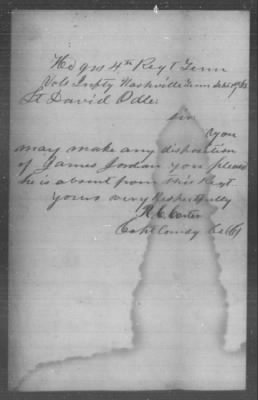 Hd qrs 4th Regt Tenn
Vols Infty Nashville Tenn
Lt David Odle
Sir
you
may make any disposition
of James Jordan you please
he is absent from this Regt
yours very Respectfully
R. C. Carter
Capt Comdg Co